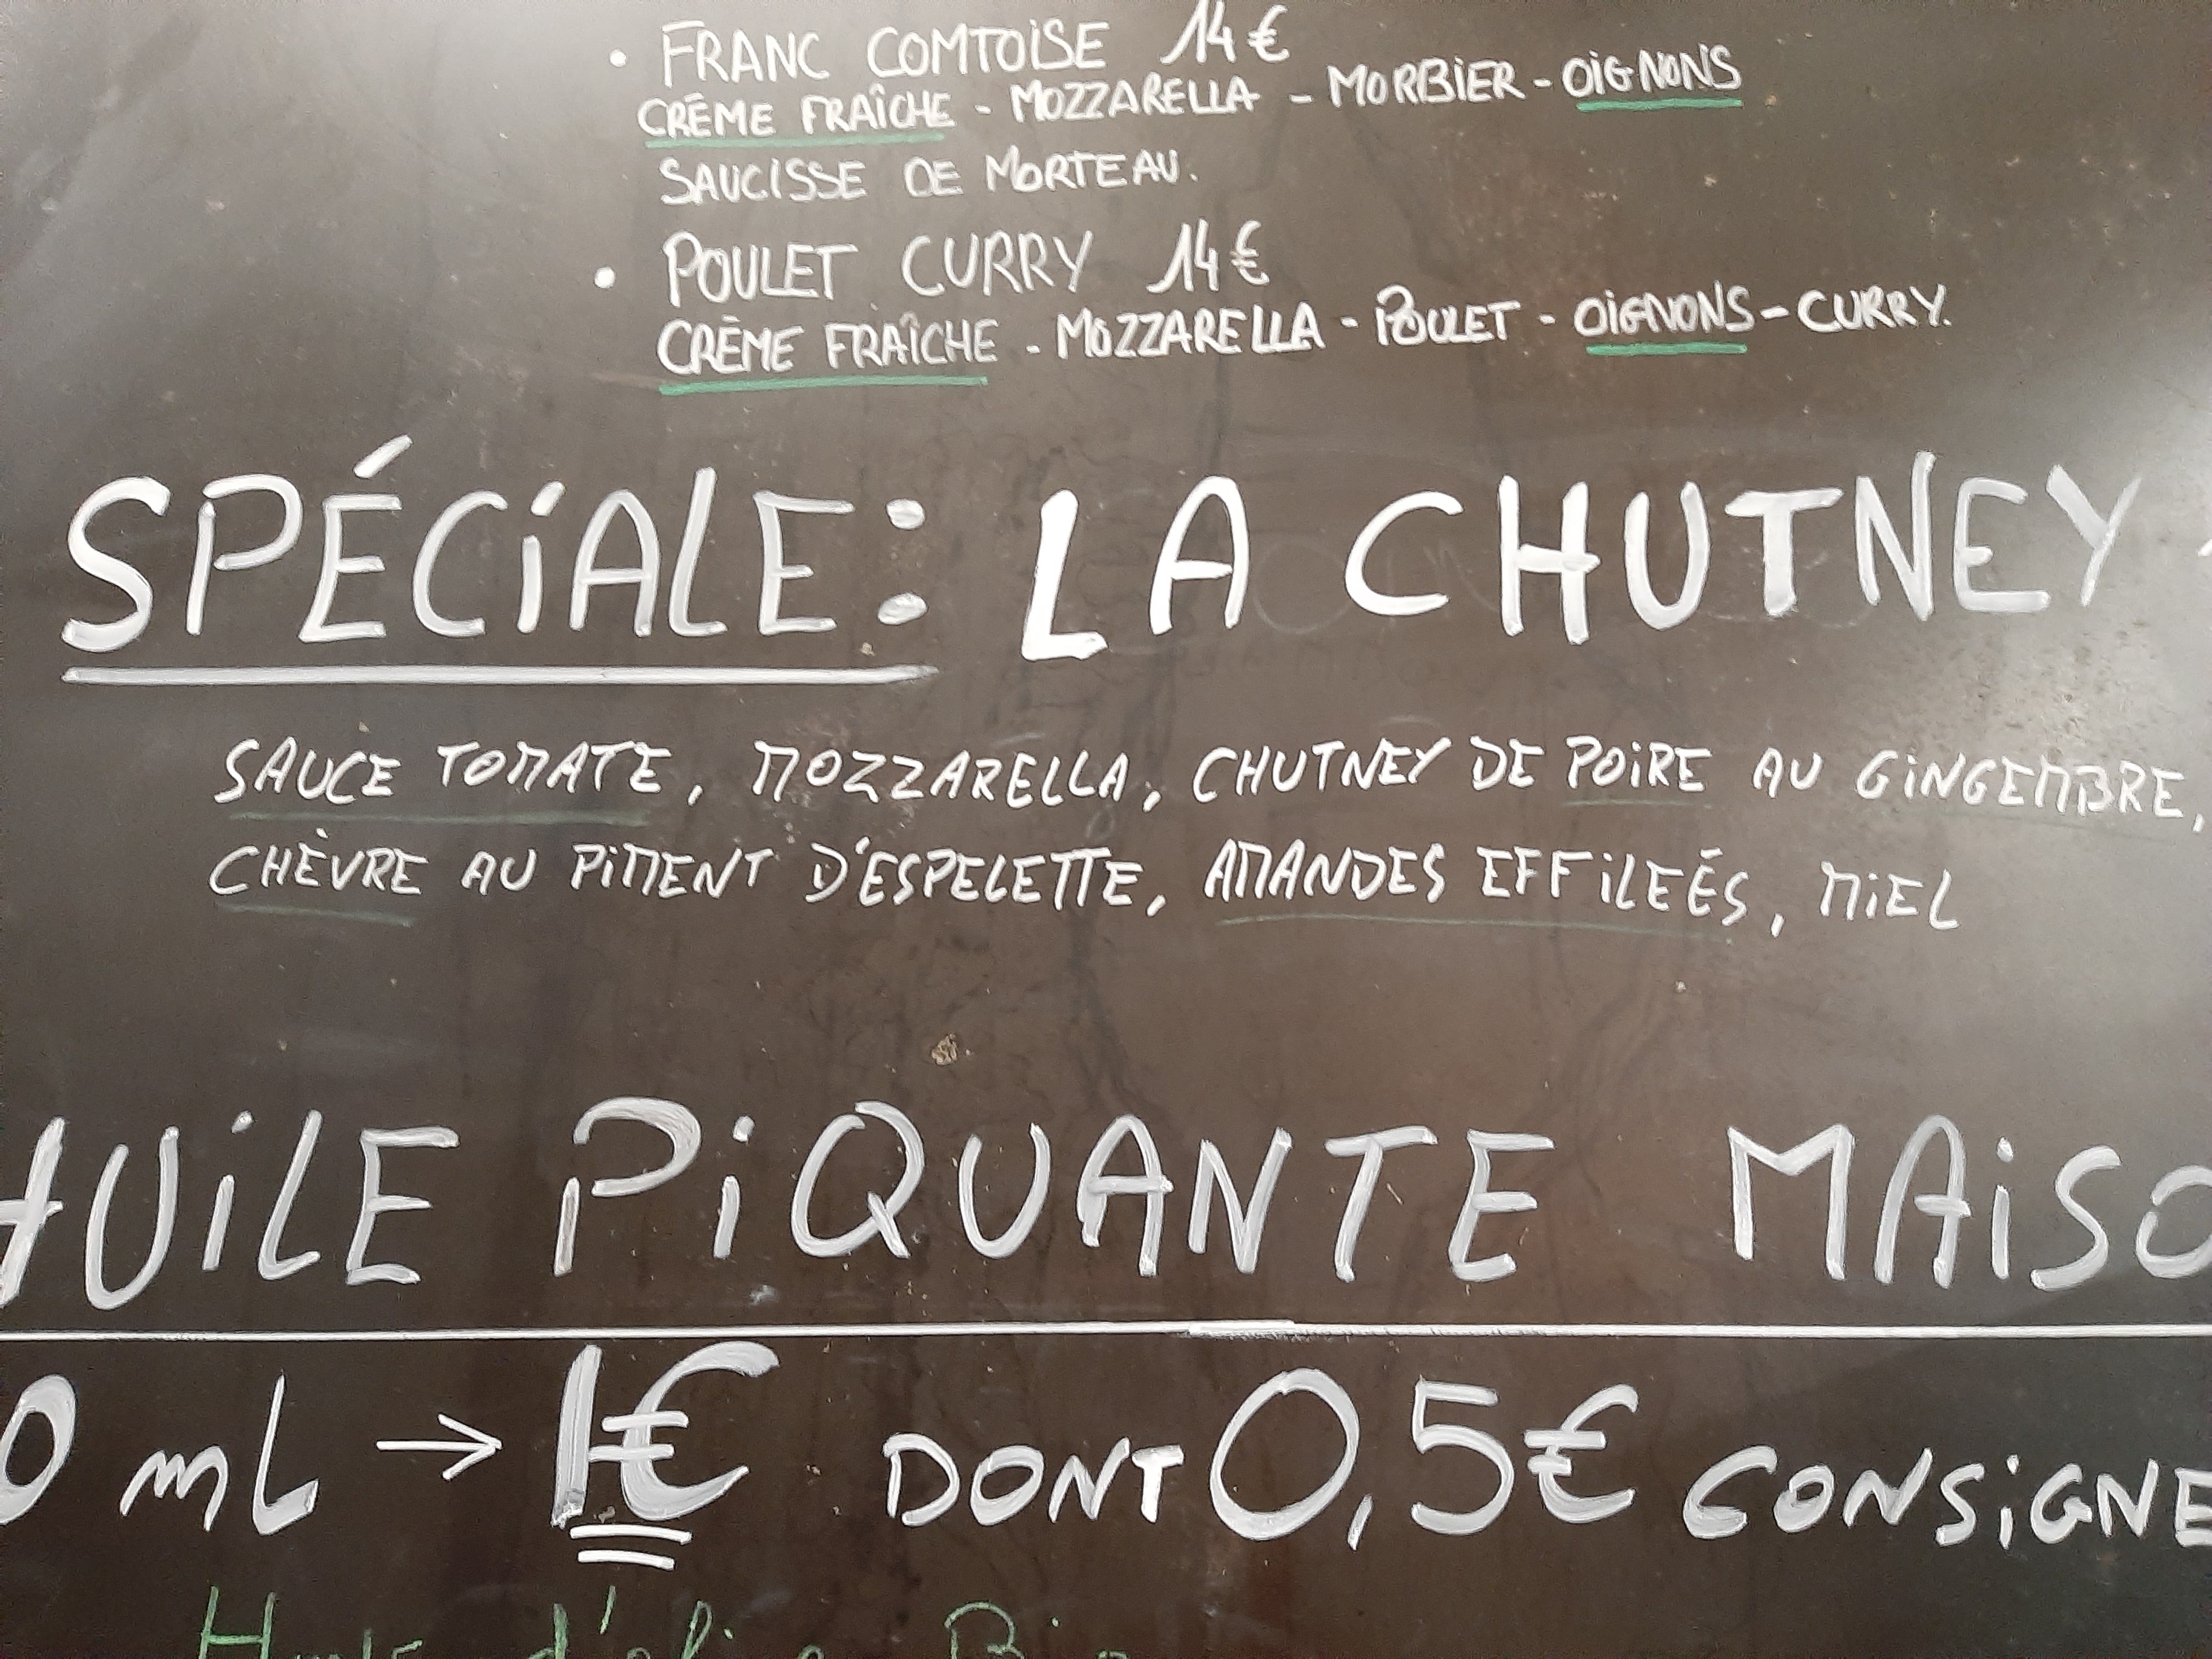 • FRANC COMTOISE 14€
CRÈME FRAÎCHE - MOZZARELLA - MORBIER - OIGNONS
SAUCISSE DE MORTEAU.
• POULET CURRY 14€
CRÈME FRAÎCHE - MOZZARELLA - POULET - OIGNONS - CURRY.
SPÉCIALE: LA CHUTNEY
SAUCE TOMATE, MOZZARELLA, CHUTNEY DE POIRE AU GINGEMBRE,
CHÈVRE AU PIMENT D'ESPELETTE, AMANDES EFFILEÉS, MIEL
HUILE PIQUANTE MAISO
0 mL → 1€ DONT 0,5€ CONSIGNE